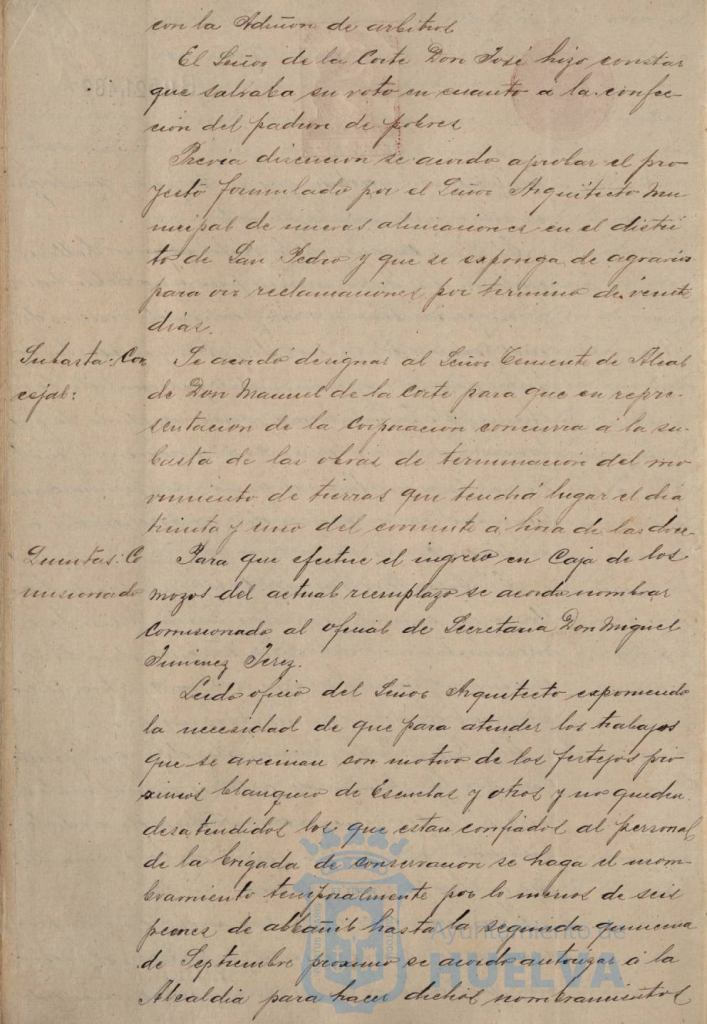 con la Adición de arbitrios
El Señor de la Corte Don José hizo constar
que salvaba su voto en cuanto á la confec-
cion del padron de pobres
Previa discucion se acordo aprobar el pro-
yecto formulado por el Señor Arquitecto Mu-
nicipal de nuevas alineaciones en el distri-
to de San Pedro y que se exponga de agravios
para oir reclamaciones por termino de veinte
dias.
Subasta: Con
cejal:
Se acordó designar al Señor Teniente de Alcal
de Don Manuel de la Corte para que en repre-
sentacion de la Corporacion concurra á la su-
basta de las obras de terminacion del mo-
vimiento de tierras que tendrá lugar el dia
treinta y uno del corriente á hora de las doce-
Quintas: Co
misionado
Para que efectue el ingreso en Caja de los
mozos del actual reemplazo se acordo nombrar
Comisionado al oficial de Secretaria Don Miguel
Jimenez Jerez.
Leido oficio del Señor Arquitecto exponiendo
la necesidad de que para atender los trabajos
que se avecinan con motivo de los festejos pro
ximos blanqueo de Escuelas y otros y no queden
desatendidos los que estan confiados al personal
de la brigada de conservacion se haga el nom-
bramiento temporalmente por lo menos de seis
peones de albañil hasta la segunda quincena
de Septiembre proximo se acordo autorizar á la
Alcaldia para hacer dichos nombramientos
Ayuntamiento de
HUELVA